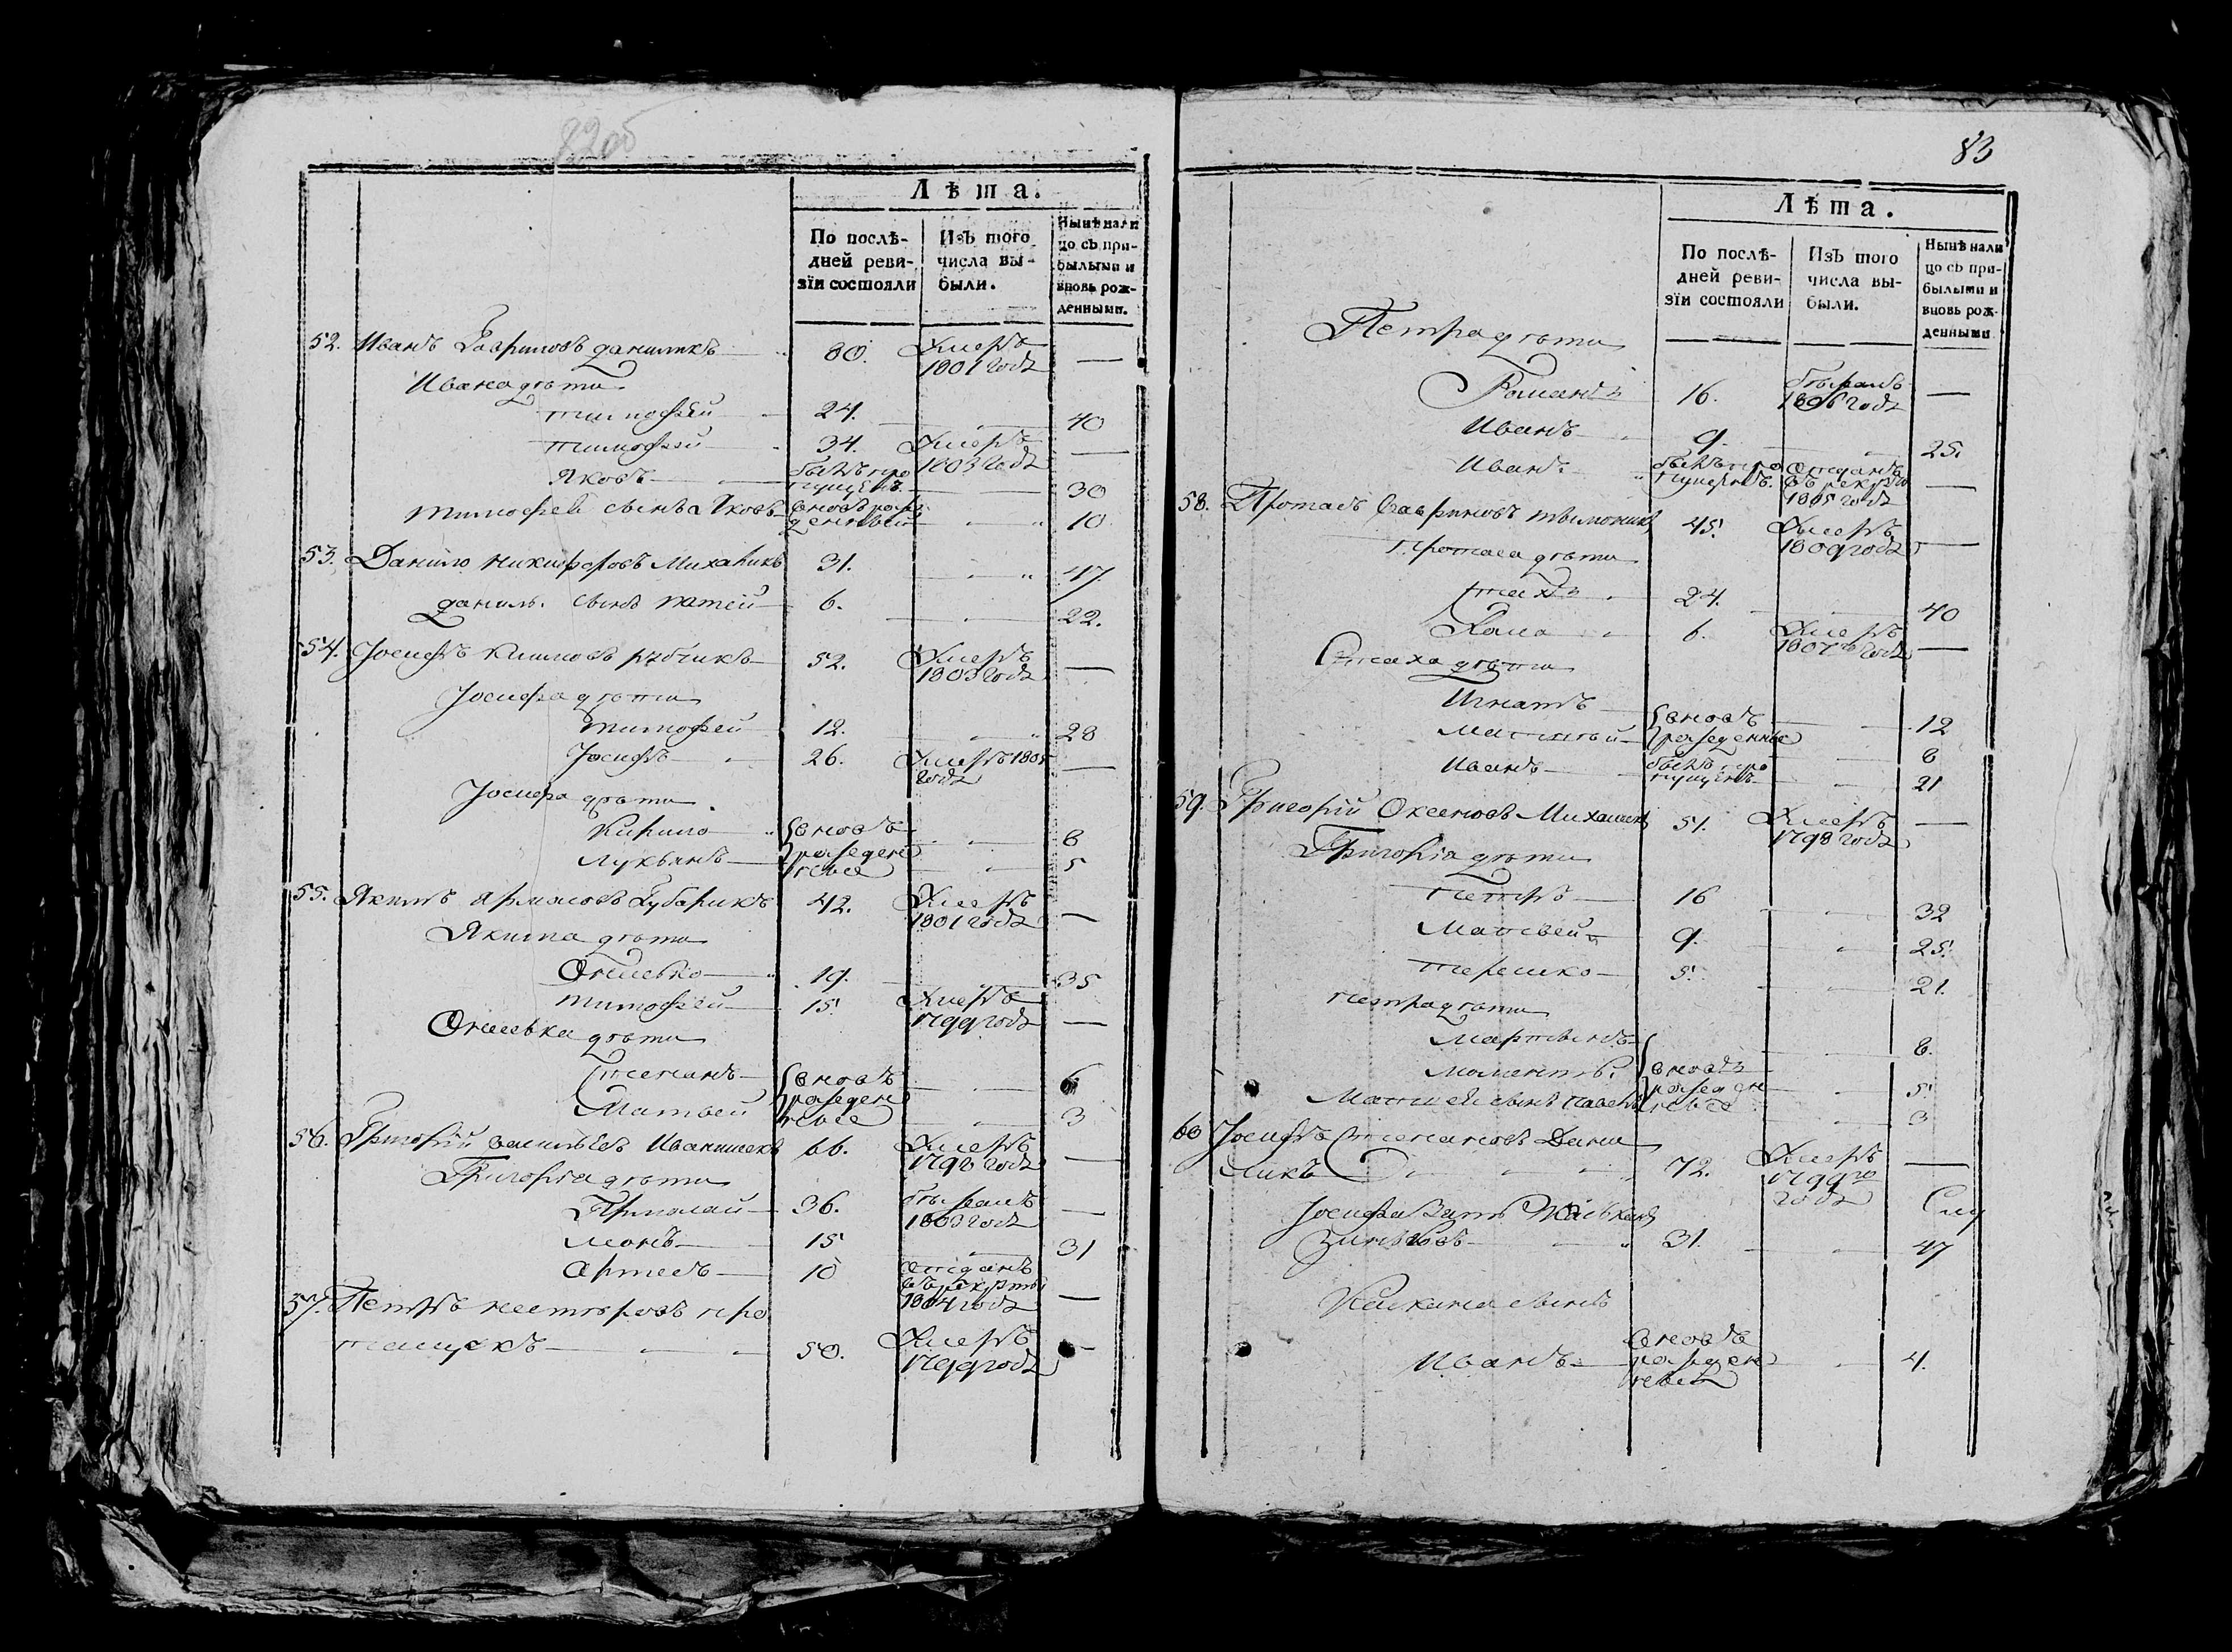 82об
Лѣта.
По послѣ-
дней реви-
зїи состояли
Изъ того
числа вы-
были.
Нынѣ нали
цо съ при-
былыми и
вновь рож-
денными.
52. Иванъ Гавриловъ даниликъ 80. Умеръ 1801 годꙋ —
Ивана дѣти
тимофей 24. — 40
тимофей 34. Умеръ 1803 годꙋ —
Яковъ былъ про пущенъ. — 30
тимофей сынъ Яковъ вновь рож денный — 10
53. Данило никифоровъ Михаликъ 31. — 47
данилы сынъ патей 6. — 22.
54. Іосифъ климовъ рꙋбчикъ 52. Умеръ 1803 годꙋ —
Іосифа дѣти
тимофей 12. — 28
Іосифъ 26. Умеръ 1805 годꙋ —
Іосифа дѣти
Кирило вновь 8
Лукьянъ рожден ные 5
55. Якимъ Ярмоловъ Губарикъ 42. Умеръ 1801 годꙋ —
Якима дѣти
Омелько 19. — 35
тимофей 15. Умеръ 1799 годꙋ —
Омелька дѣти
Степанъ вновь 6
Матвей рожден ные 3
56. Григорій васильевъ Иванишекъ 66. Умеръ 1798 годꙋ —
Григорія дѣти
36. бѣжалъ 1803 годꙋ —
15 — 31
Артемъ 10 отданъ въ рекрꙋты 1804 годꙋ —
57. Петръ нестеровъ про
тащукъ 50. Умеръ 1799 годꙋ —
83
Лѣта.
По послѣ-
дней реви-
зїи состояли
Изъ того
числа вы-
были.
Нынѣ нали
цо съ при-
былыми и
вновь рож-
денными
Петра дѣти
Романъ 16. бѣжалъ 1806 годꙋ —
Иванъ 9. — 25.
Иванъ былъ про пущенъ. отданъ въ рекрꙋты 1805 годꙋ —
58. Протасъ Гавриловъ 45. Умеръ 1809 годꙋ —
Протаса дѣти
Стахъ 24. — 40
Хома 6. Умеръ 1807 годꙋ —
Стаха дѣти
Игнатъ вновь 12
рожденные 8
Иванъ былъ про пущенъ 21
59. Григорій Оксеновъ Михалекъ 51. Умеръ 1798 годꙋ —
Григорія дѣти
петръ 16 — 32
Матвей 9. — 25.
терешко 5. — 21.
петра дѣти
Мартынъ 8.
вновь рожден ные 5
сынъ павелъ 3
60 Іосифъ Степановъ Дани
ликъ 72. Умеръ 1799го годꙋ —
Іосифа зять
Зиновьевъ 31. — 47
сынъ
Иванъ вновь рожден ный 4.